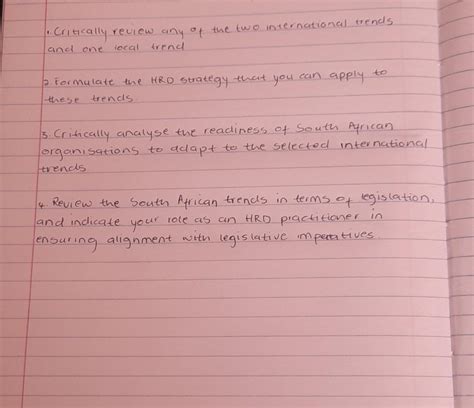 1. Critically review any of the two international trends
and one local trend
2. Formulate the HRD strategy that you can apply to
these trends
3. Critically analyse the readiness of South African
organisations to adapt to the selected international
trends
4. Review the South African trends in terms of legislation,
and indicate your role as an HRD practitioner in
ensuring alignment with legislative imperatives